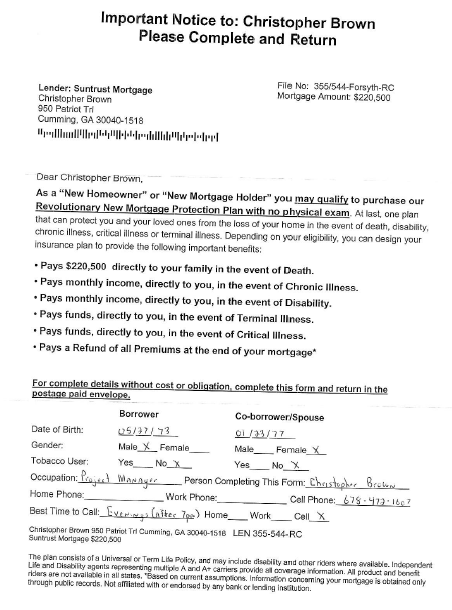 Important Notice to: Christopher Brown
Please Complete and Return
Lender: Suntrust Mortgage
Christopher Brown
950 Patriot Trl
Cumming, GA 30040-1518
File No: 355/544-Forsyth-RC
Mortgage Amount: $220,500
Dear Christopher Brown,
As a "New Homeowner" or "New Mortgage Holder" you may qualify to purchase our
Revolutionary New Mortgage Protection Plan with no physical exam. At last, one plan
that can protect you and your loved ones from the loss of your home in the event of death, disability,
chronic illness, critical illness or terminal illness. Depending on your eligibility, you can design your
insurance plan to provide the following important benefits:
• Pays $220,500 directly to your family in the event of Death.
• Pays monthly income, directly to you, in the event of Chronic Illness.
• Pays monthly income, directly to you, in the event of Disability.
• Pays funds, directly to you, in the event of Terminal Illness.
• Pays funds, directly to you, in the event of Critical Illness.
• Pays a Refund of all Premiums at the end of your mortgage*
For complete details without cost or obligation, complete this form and return in the
postage paid envelope.
Borrower Co-borrower/Spouse
Date of Birth:
Gender: Male X Female Male Female X
Tobacco User: Yes No X Yes No X
Occupation: Project Manager Person Completing This Form: Christopher Brown
Home Phone: Work Phone: Cell Phone:
Best Time to Call: Evenings (after 7pm) Home Work Cell X
Christopher Brown 950 Patriot Trl Cumming, GA 30040-1518 LEN 355-544-RC
Suntrust Mortgage $220,500
The plan consists of a Universal or Term Life Policy, and may include disability and other riders where available. Independent
Life and Disability agents representing multiple A and A+ carriers provide all coverage information. All product and benefit
riders are not available in all states. *Based on current assumptions. Information concerning your mortgage is obtained only
through public records. Not affiliated with or endorsed by any bank or lending institution.